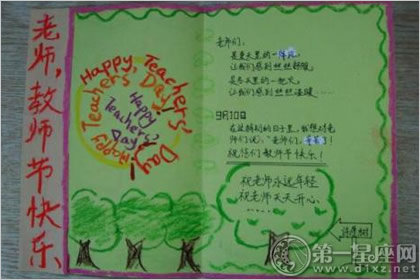 老师,教师节快乐
Happy Teachers' Day!
Happy Teachers' Day!
Happy
Teachers'
Day!
老师们:
是夏天里的一阵风
让我们感到丝丝轻凉
是冬天里的一把火
让我们感到丝丝温暖……
9月10日
在这特别的日子里,我想对老
师们说:"老师们,辛苦了!
祝你们教师节快乐!
祝老师永远年轻
祝老师天天开心
第一星座网
www.d1xz.net